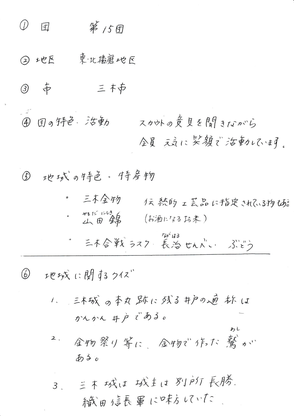 ① 団 第15団
② 地区 東北播磨地区
③ 市 三木市
④ 団の特色・活動 スカウトの意見を聞きながら
全員 元気に笑顔で活動しています。
⑤ 地域の特色・特産物
・三木金物 伝統的工芸品に指定されている物もある
・山田錦 (お酒になるお米)
やまだにしき
・三木合戦ラスク 長治せんべい ぶどう
ながはる
⑥ 地域に関するクイズ
1. 三木城の本丸跡に残る井戸の通称は
かんかん井戸である。
2. 金物祭り等に、金物で作った鷲が
わし
ある。
3. 三木城は城主は別所長勝
織田信長軍に味方していた